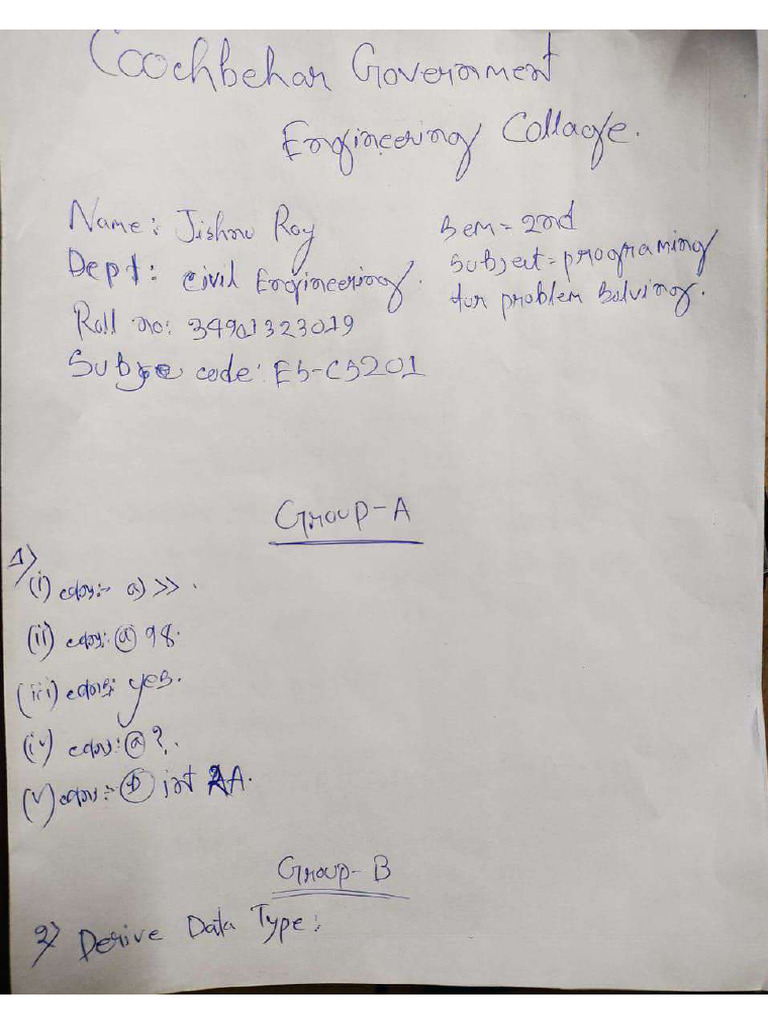 Coochbehar Government
Engineering Collage.
Name: Jishnu Roy
Sem = 2nd
Dept: Civil Engineering.
Subject = programing
for problem Solving.
Roll no: 34901323019
Subje code: ES-CS201
Group-A
1)
(i) a) >> .
(ii) 98.
(iii) yes.
(iv) a ?.
(v) int AA.
Group-B
2) Derive Data Type: